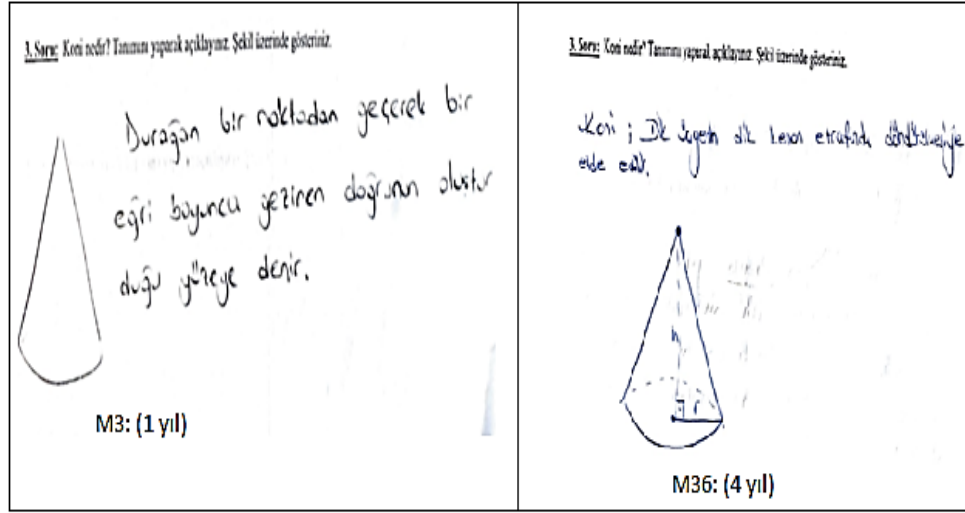 3. Soru: Koni nedir? Tanımını yaparak açıklayınız. Şekil üzerinde gösteriniz.
Durağan bir noktadan geçerek bir
eğri boyunca gezinen doğrunun oluştur
duğu yüzeye denir.
M3: (1 yıl)
3. Soru: Koni nedir? Tanımını yaparak açıklayınız. Şekil üzerinde gösteriniz.
Koni ; Dik üçgenin dik kenarı etrafında döndürülmesiyle
elde edilir.
h
r
M36: (4 yıl)